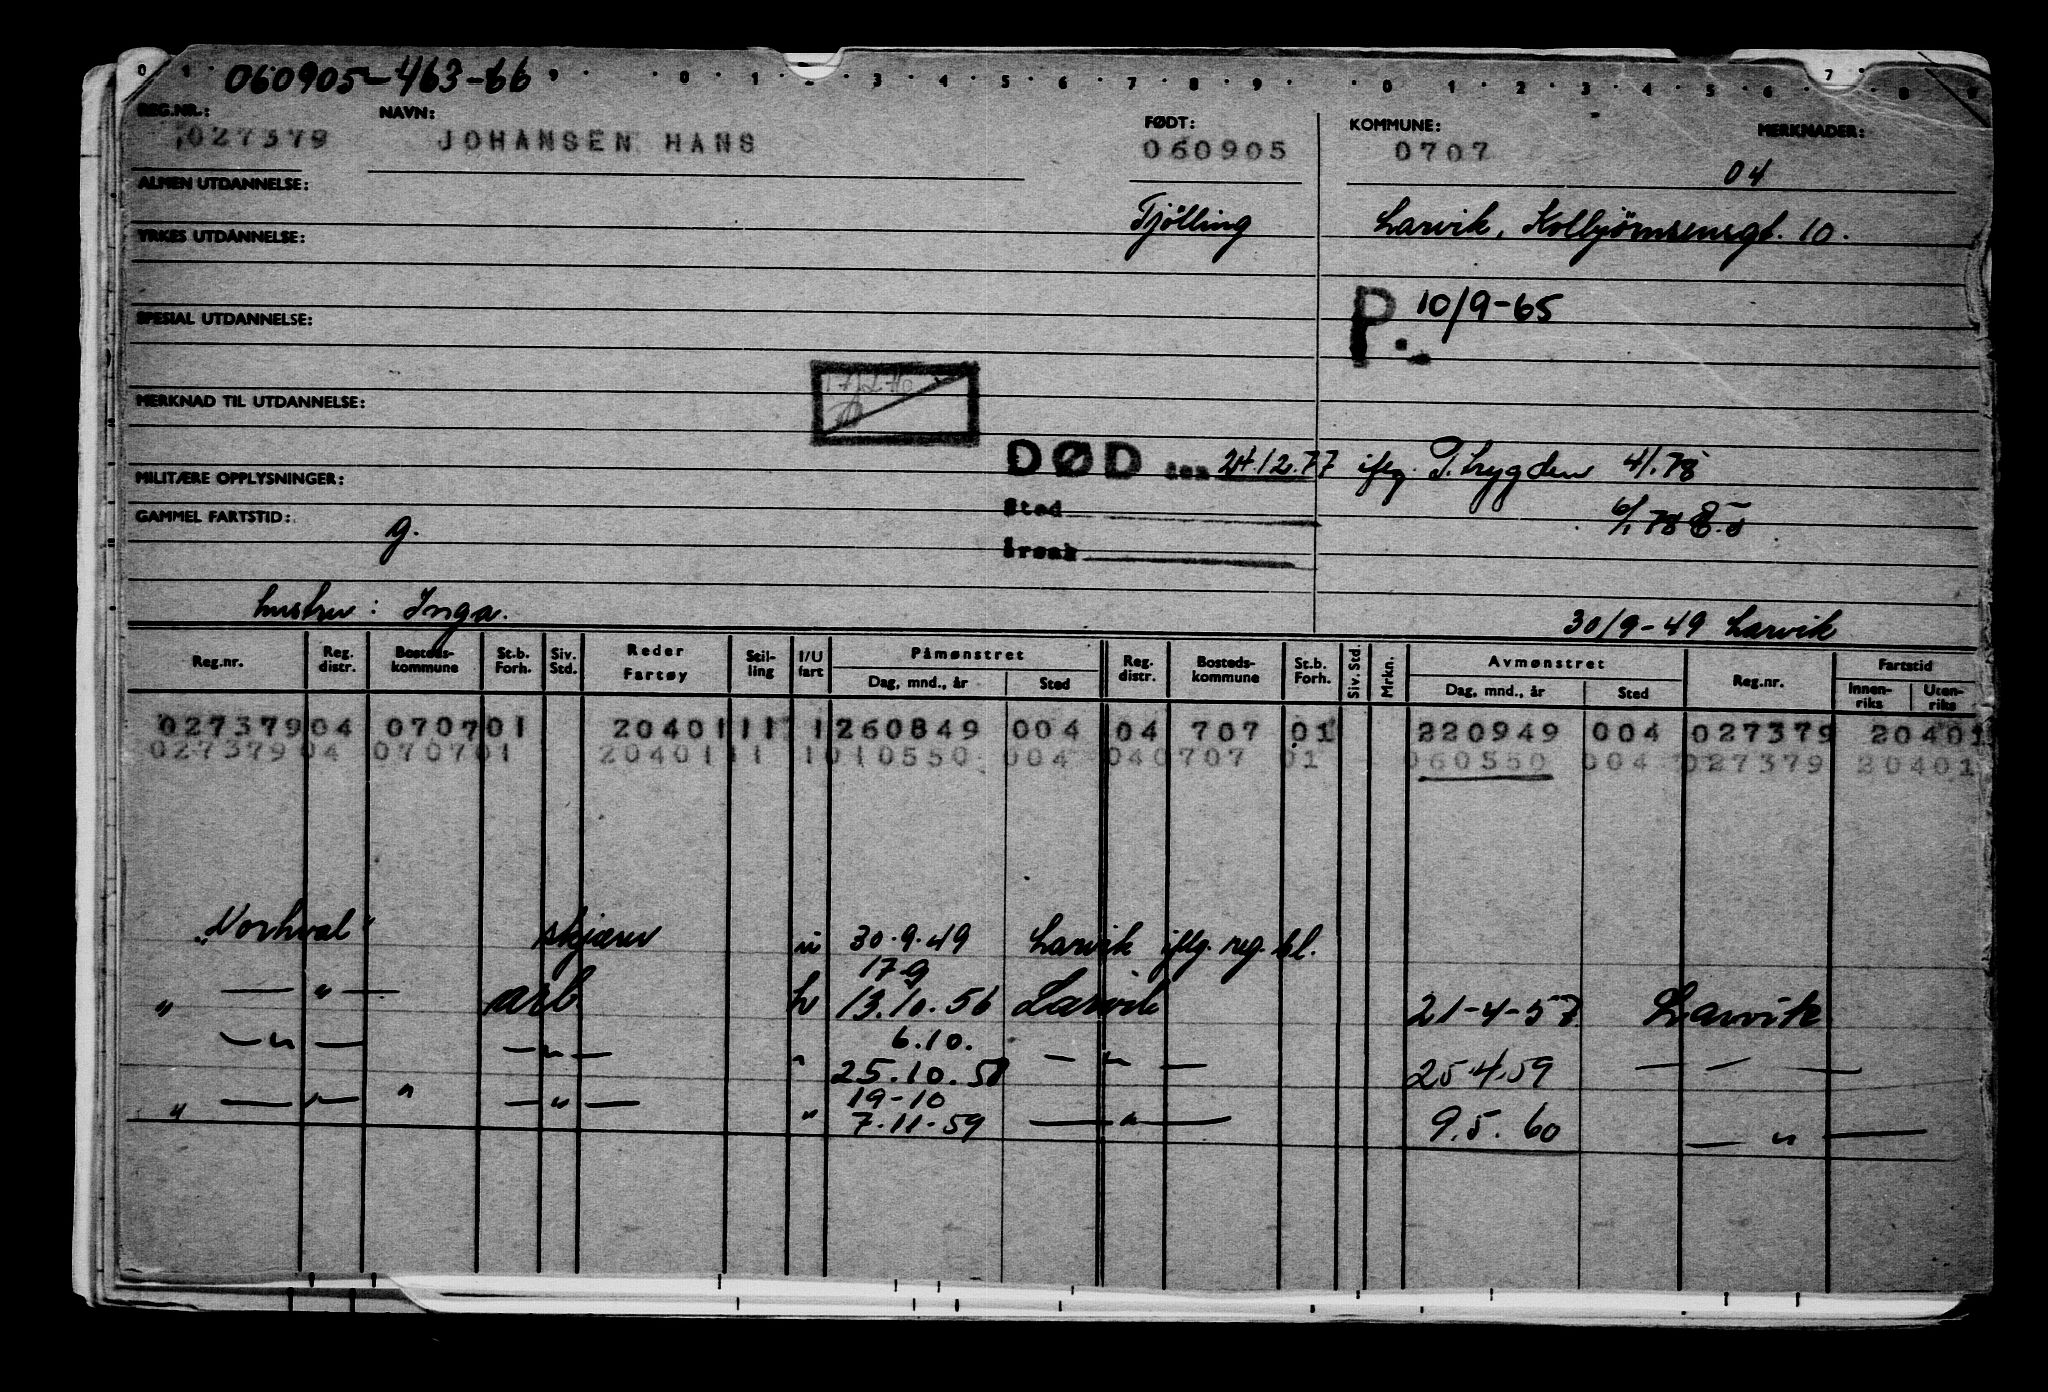 060905-463-66
REG.NR.: NAVN: FØDT: KOMMUNE: MERKNADER:
027379 JOHANSEN HANS 060905 0707
04
ALMEN UTDANNELSE:
Tjölling Larvik, Kolbjörnsensgt. 10.
YRKES UTDANNELSE:
P. 10/9-65
SPESIAL UTDANNELSE:
MERKNAD TIL UTDANNELSE:
DØD den 24.12.77 iflg. T.trygden 4/1.78
MILITÆRE OPPLYSNINGER:
Sted
6/1 78
GAMMEL FARTSTID: g.
Årsak
hustru: Inga.
30/9-49 Larvik
Reg.nr. Reg. distr. Bosteds-kommune St.b. Forh. Siv. Std. Reder Fartøy Stil-ling I/U fart Påmønstret Reg. distr. Bosteds-kommune St.b. Forh. Siv. Std. Mrkn. Avmønstret Reg.nr. Fartstid
Dag, mnd., år Sted Dag, mnd., år Sted Innen-riks Uten-riks
027379 04 0707 01 20401 11 1 260849 004 04 707 01 220949 004 027379 20401
027379 04 0707 01 20401 11 1 010550 004 04 0707 01 060550 004 027379 20401
"Norhval" skjærer u 30.9.49 Larvik iflg. reg. bl.
17-9
" — " — arb h 13.10.56 Larvik 21-4-57 Larvik
6.10.
— " — — " — " 25.10.58 — " — 25.4.59 — — —
19-10
" — " — " — " — " 7.11.59 — " — 9.5.60 — " —